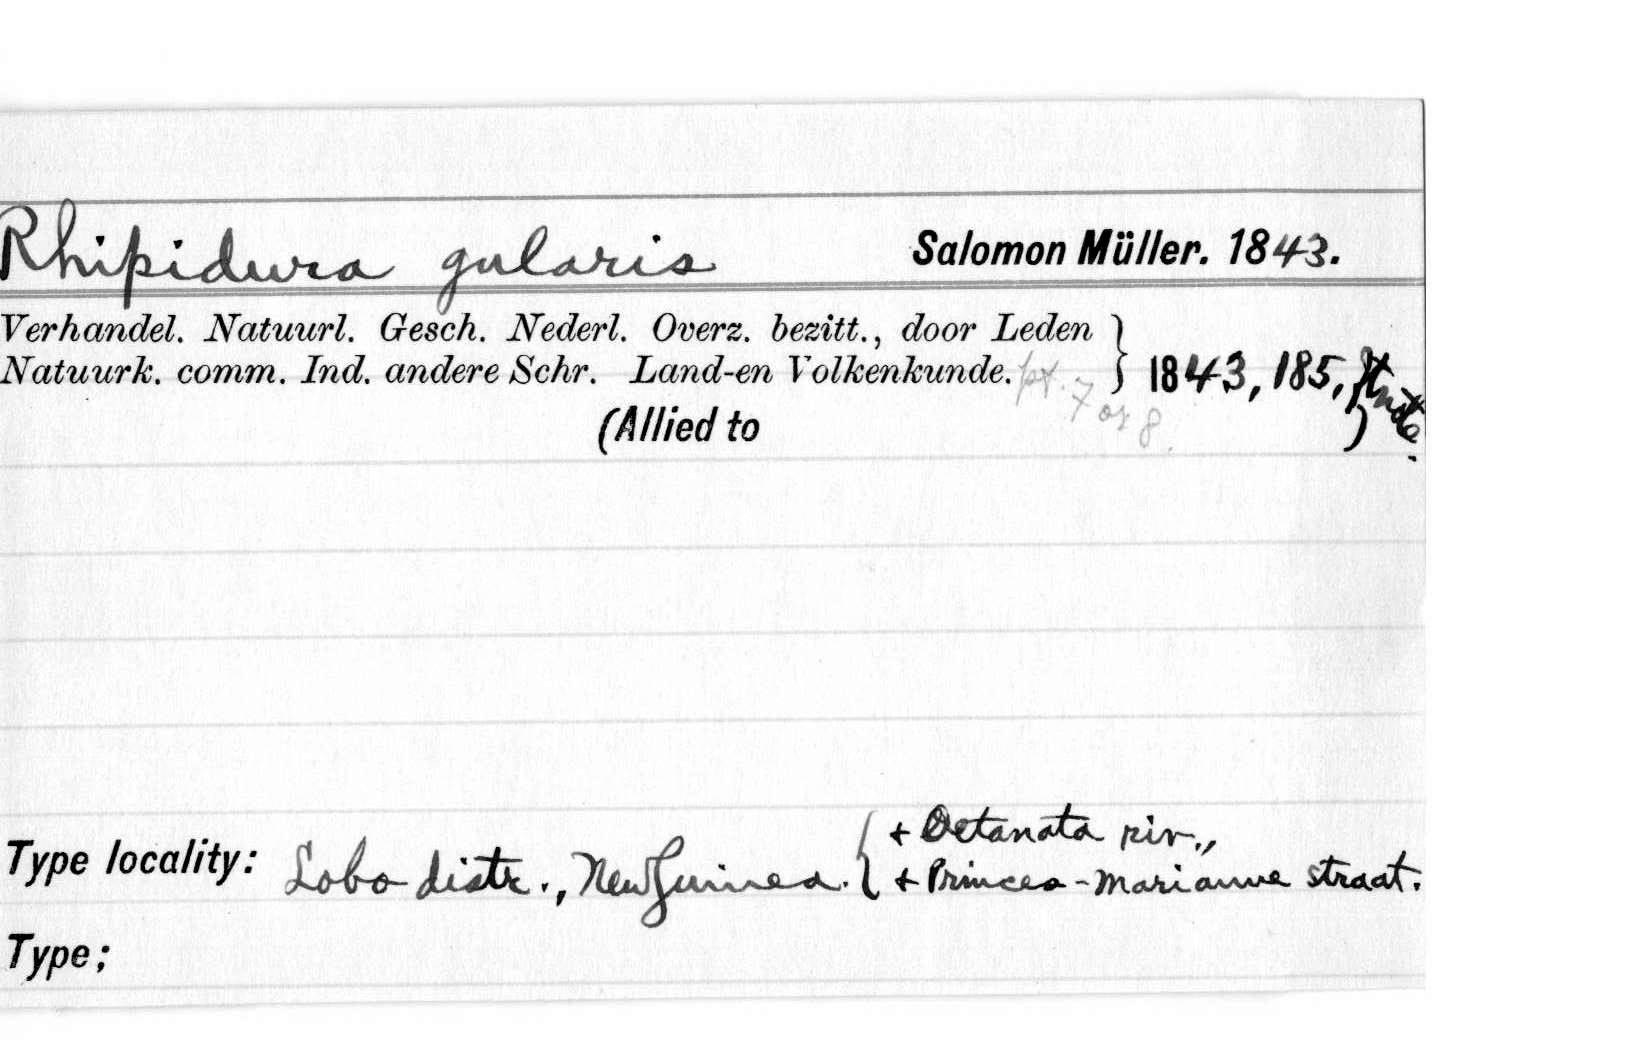 Rhipidura gularis Salomon Müller. 1843.
Verhandel. Natuurl. Gesch. Nederl. Overz. bezitt., door Leden
Natuurk. comm. Ind. andere Schr. Land-en Volkenkunde. pt. 7 or 8. } 1843, 185, ftnote.
(Allied to )
Type locality: Lobo distr., New Guinea. { + Oetanata riv.,
+ Princes-Marianne straat.
Type;